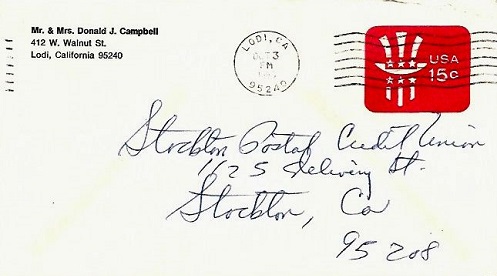 Mr. & Mrs. Donald J. Campbell
412 W. Walnut St.
Lodi, California 95240
LODI, CA
PM
95240
USA
15c
Stockton Postal Credit Union
1625 Delivery St.
Stockton, Ca
95208